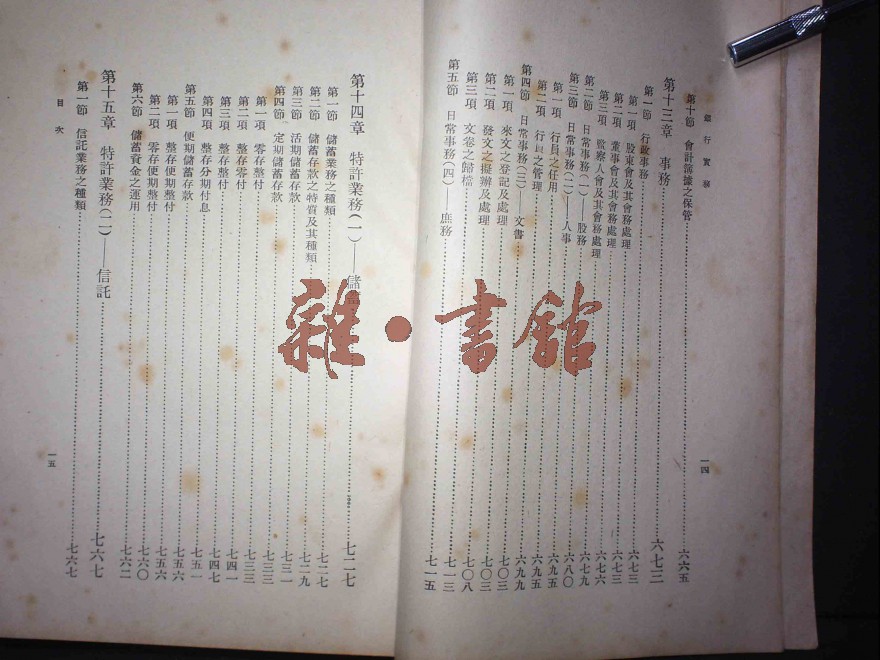 銀行實務
一四
第十節 會計簿據之保管……六六五
第十三章 事務……六七三
第一節 行政事務……六七三
第一項 股東會及其會務處理……六七三
第二項 董事會及其會務處理……六七六
第三項 監察人會及其會務處理……六七九
第二節 日常事務(一)——股務……六八〇
第三節 日常事務(二)——人事……六九五
第一項 行員之任用……六九五
第二項 行員之管理……六九九
第四節 日常事務(三)——文書……七〇三
第一項 來文之登記及處理……七〇三
第二項 發文之擬辦及處理……七〇八
第三項 文卷之歸檔……七一三
第五節 日常事務(四)——庶務……七一五
第十四章 特許業務(一)——儲蓄……七二七
第一節 儲蓄業務之種類……七二七
第二節 儲蓄存款之特質及其種類……七二九
第三節 活期儲蓄存款……七三一
第四節 定期儲蓄存款……七三三
第一項 零存整付……七三三
第二項 整存零付……七四一
第三項 整存整付……七四七
第四項 整存分期付息……七五一
第五節 便期儲蓄存款……七五六
第一項 整存便期整付……七五六
第二項 零存便期整付……七六〇
第六節 儲蓄資金之運用……七六二
第十五章 特許業務(二)——信託……七六七
第一節 信託業務之種類……七六七
目次
一五
雜·書館